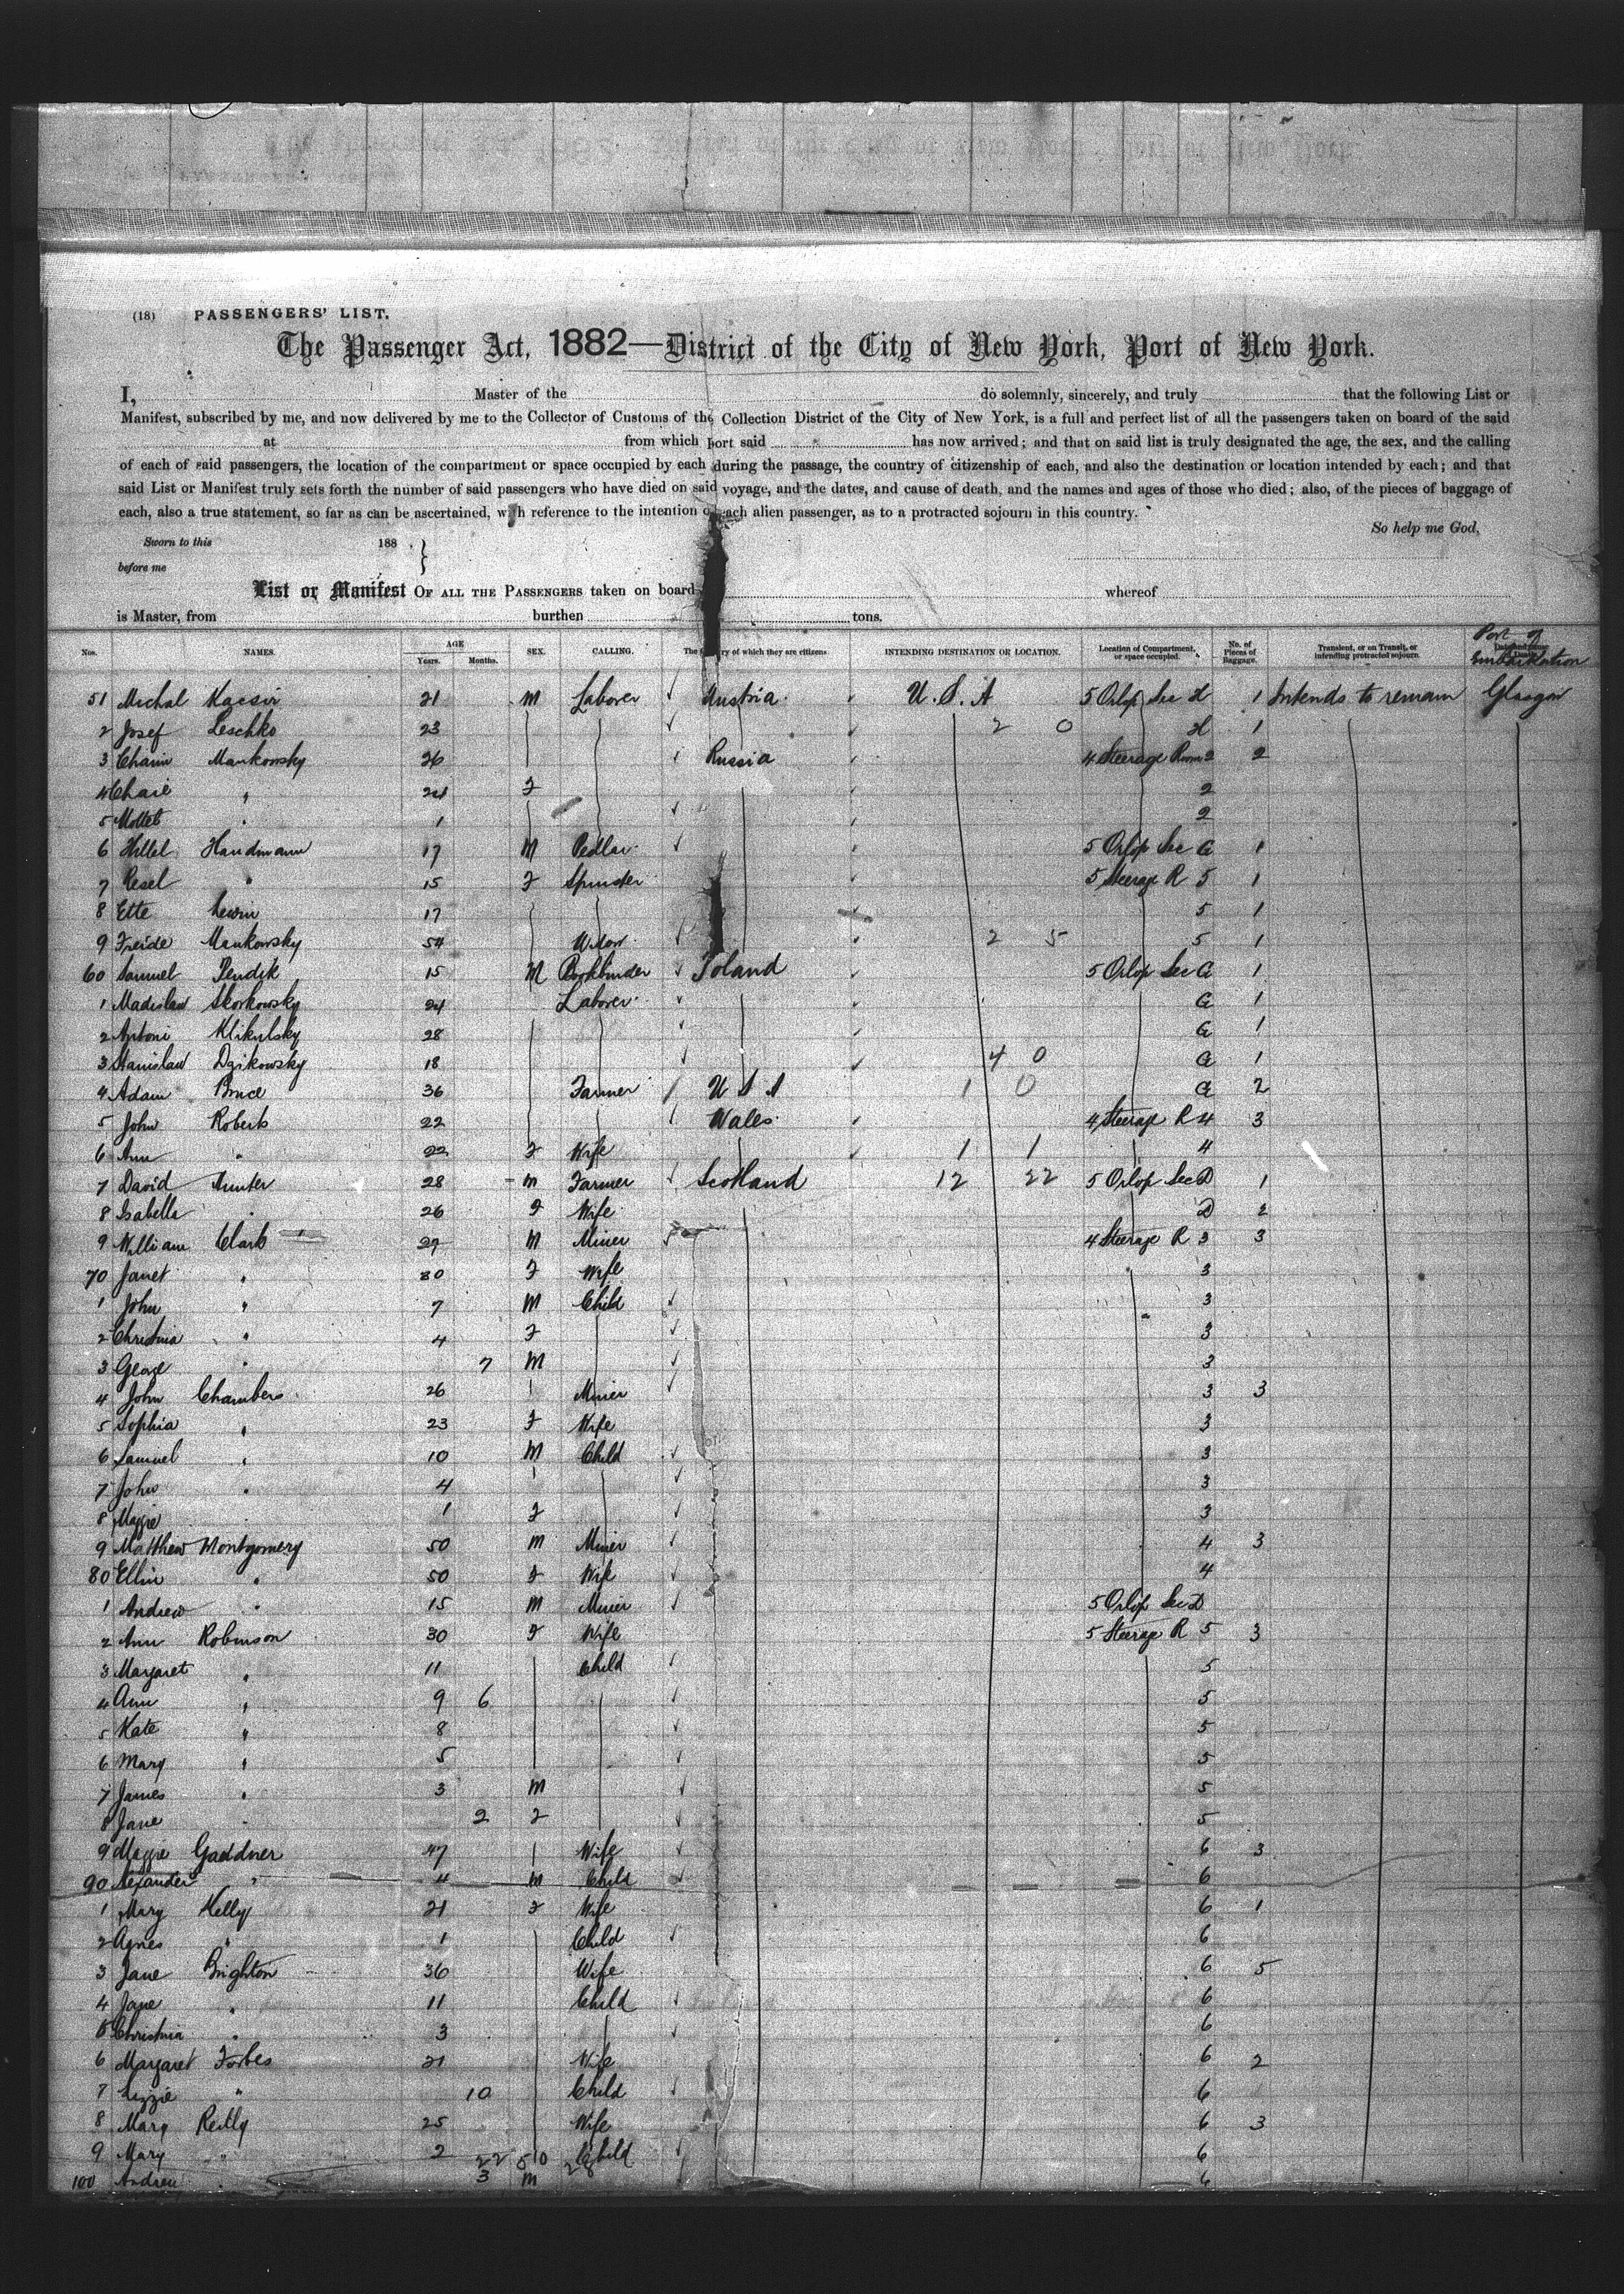 (18) PASSENGERS' LIST.
The Passenger Act, 1882—District of the City of New York, Port of New York.
I, Master of the do solemnly, sincerely, and truly that the following List or
Manifest, subscribed by me, and now delivered by me to the Collector of Customs of the Collection District of the City of New York, is a full and perfect list of all the passengers taken on board of the said
at from which port said has now arrived; and that on said list is truly designated the age, the sex, and the calling
of each of said passengers, the location of the compartment or space occupied by each during the passage, the country of citizenship of each, and also the destination or location intended by each; and that
said List or Manifest truly sets forth the number of said passengers who have died on said voyage, and the dates, and cause of death, and the names and ages of those who died; also, of the pieces of baggage of
each, also a true statement, so far as can be ascertained, with reference to the intention of each alien passenger, as to a protracted sojourn in this country.
So help me God,
Sworn to this 188
before me
List or Manifest OF ALL THE PASSENGERS taken on board whereof
is Master, from burthen tons.
Nos. NAMES. AGE Years. Months. SEX. CALLING. The ry of which they are citizens INTENDING DESTINATION OR LOCATION. Location of Compartment, or space occupied. No. of Pieces of Baggage. Transient, or on Transit, or intending protracted sojourn. Port of Embarkation
51 Michal Kacsir 21 M Laborer Austria U.S.A 5 Orlop Sec H 1 Intends to remain Glasgow
2 Josef Leschko 23 2 0 H 1
3 Chaim Mankowsky 26 Russia 4 Steerage Room 2 2
4 Chaie " 24 F 2
5 Mottet " 1 2
6 Hillel Handmann 17 M Pedlar 5 Orlop Sec G 1
7 Resel " 15 F Spinster 5 Steerage R 5 1
8 Ette Lewin 17 5 1
9 Freide Mankowsky 54 Widow 2 5 5 1
60 Samuel Pendik 15 M Bookbinder Poland 5 Orlop Sec G 1
1 Madislaw Skorkowsky 24 Laborer G 1
2 Antoni Klikulsky 28 G 1
3 Stanislaw Dzikowsky 18 4 0 G 1
4 Adam Bruce 36 Farmer U S A 1 0 G 2
5 John Roberts 22 Wales 4 Steerage R 4 3
6 Ann " 22 F Wife 1 1 4
7 David Hunter 28 M Farmer Scotland 12 22 5 Orlop Sec D 1
8 Isabella " 26 F Wife D 2
9 William Clark 29 M Miner 4 Steerage R 3 3
70 Janet " 30 F Wife 3
1 John " 7 M Child 3
2 Christina " 4 F 3
3 George " 7 M 3
4 John Chambers 26 Miner 3 3
5 Sophia " 23 F Wife 3
6 Samuel " 10 M Child 3
7 John " 4 3
8 Maggie 1 F 3
9 Matthew Montgomery 50 M Miner 4 3
80 Ellin " 50 F Wife 4
1 Andrew " 15 M Miner 5 Orlop Sec D
2 Ann Robinson 30 F Wife 5 Steerage R 5 3
3 Margaret " 11 Child 5
4 Ann " 9 6 5
5 Kate " 8 5
6 Mary " 5 5
7 James " 3 M 5
8 Jane " 2 F 5
9 Maggie Gardner 47 Wife 6 3
90 Alexander " 4 M Child 6
1 Mary Kelly 21 F Wife 6 1
2 Agnes " 1 Child 6
3 Jane Brighton 36 Wife 6 5
4 Jane " 11 Child 6
5 Christina " 3 6
6 Margaret Forbes 21 Wife 6 2
7 Lizzie " 10 Child 6
8 Mary Reilly 25 Wife 6 3
9 Mary " 2 Child 6
100 Andrew 3 M 6